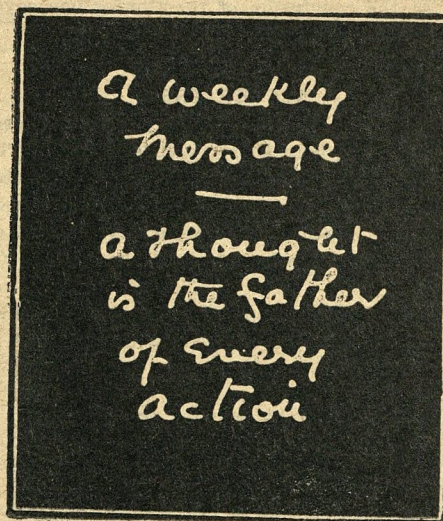 a weekly
message
a thought
is the father
of every
action